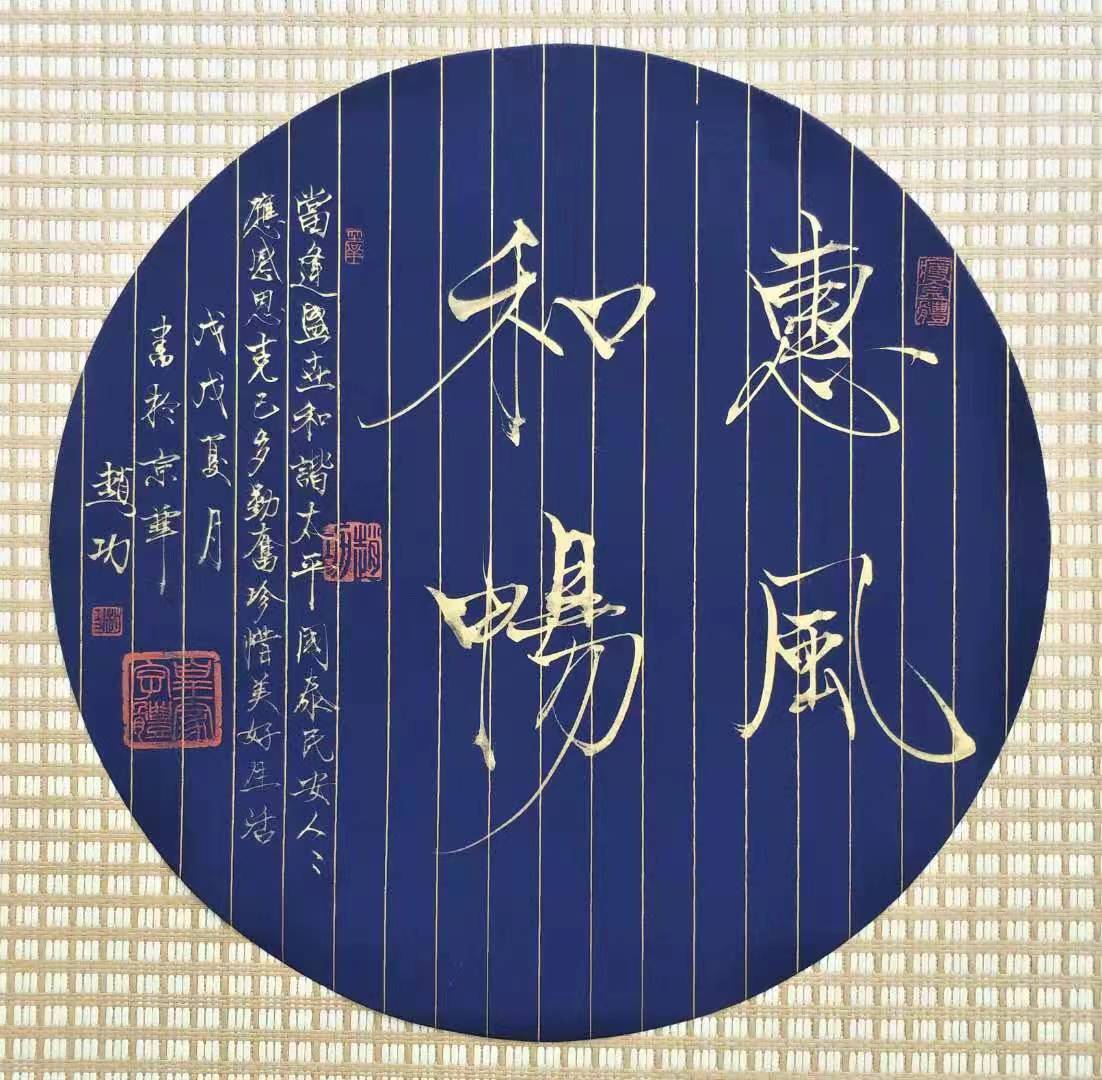 惠風
和暢
當逢盛世和諧太平國泰民安人々
應感恩克己多勤奮珍惜美好生活
戊戌夏月
書於京華
趙功
瘦金體
趙功
皇家
字體